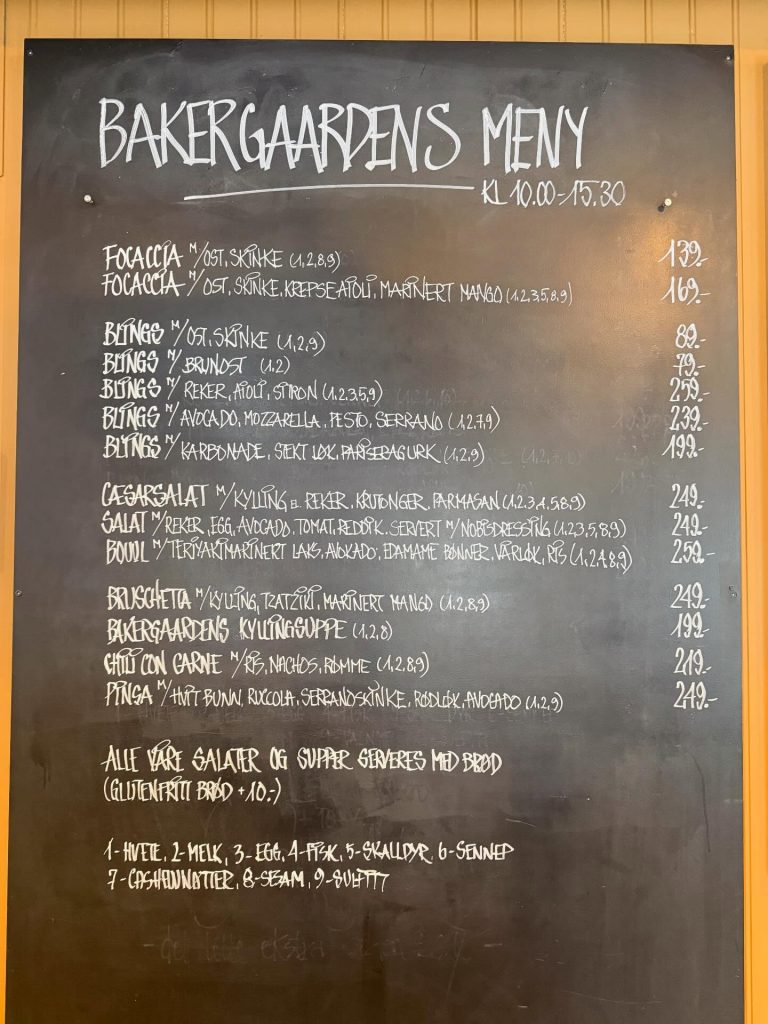 BAKERGAARDENS MENY
KL 10.00-15.30
FOCACCIA M/OST, SKINKE (1,2,8,9) 139.-
FOCACCIA M/OST, SKINKE, KREPSE AIOLI, MARINERT MANGO (1.2.3,5,8,9) 169.-
BLINGS M/OST, SKINKE (1,2,9) 89.-
BLINGS M/BRUNOST (1.2) 79.-
BLINGS M/REKER, AIOLI, SITRON (1.2.3,5,9) 259.-
BLINGS M/AVOCADO, MOZZARELLA, PESTO, SERRANO (1,2,7,9) 239.-
BLINGS M/KARBONADE, STEKT LØK, PARISERAGURK (1,2,9) 199.-
CÆSARSALAT M/KYLLING EL. REKER, KRUTONGER, PARMASAN (1.2.3,4,5,8,9) 249.-
SALAT M/REKER, EGG, AVOCADO, TOMAT, REDDIK. SERVERT M/NOBISDRESSING (1,2,3,5,8,9) 249.-
BOWL M/TERIYAKIMARINERT LAKS, AVOKADO, EDAMAME BØNNER, VÅRLØK, RIS (1,2,4,8,9) 259.-
BRUSCHETTA M/KYLLING, TZATZIKI, MARINERT MANGO (1.2,8,9) 249.-
BAKERGAARDENS KYLLINGSUPPE (1,2,8) 199.-
CHILI CON CARNE M/RIS, NACHOS, RØMME (1,2,8,9) 219.-
PINSA M/HVIT BUNN, RUCCOLA, SERRANOSKINKE, RØDLØK, AVOCADO (1.2,9) 249.-
ALLE VÅRE SALATER OG SUPPER SERVERES MED BRØD
(GLUTENFRITT BRØD +10.-)
1-HVETE, 2-MELK, 3-EGG, 4-FISK, 5-SKALLDYR, 6-SENNEP
7-CASHEWNØTTER, 8-SESAM, 9-SULFITT